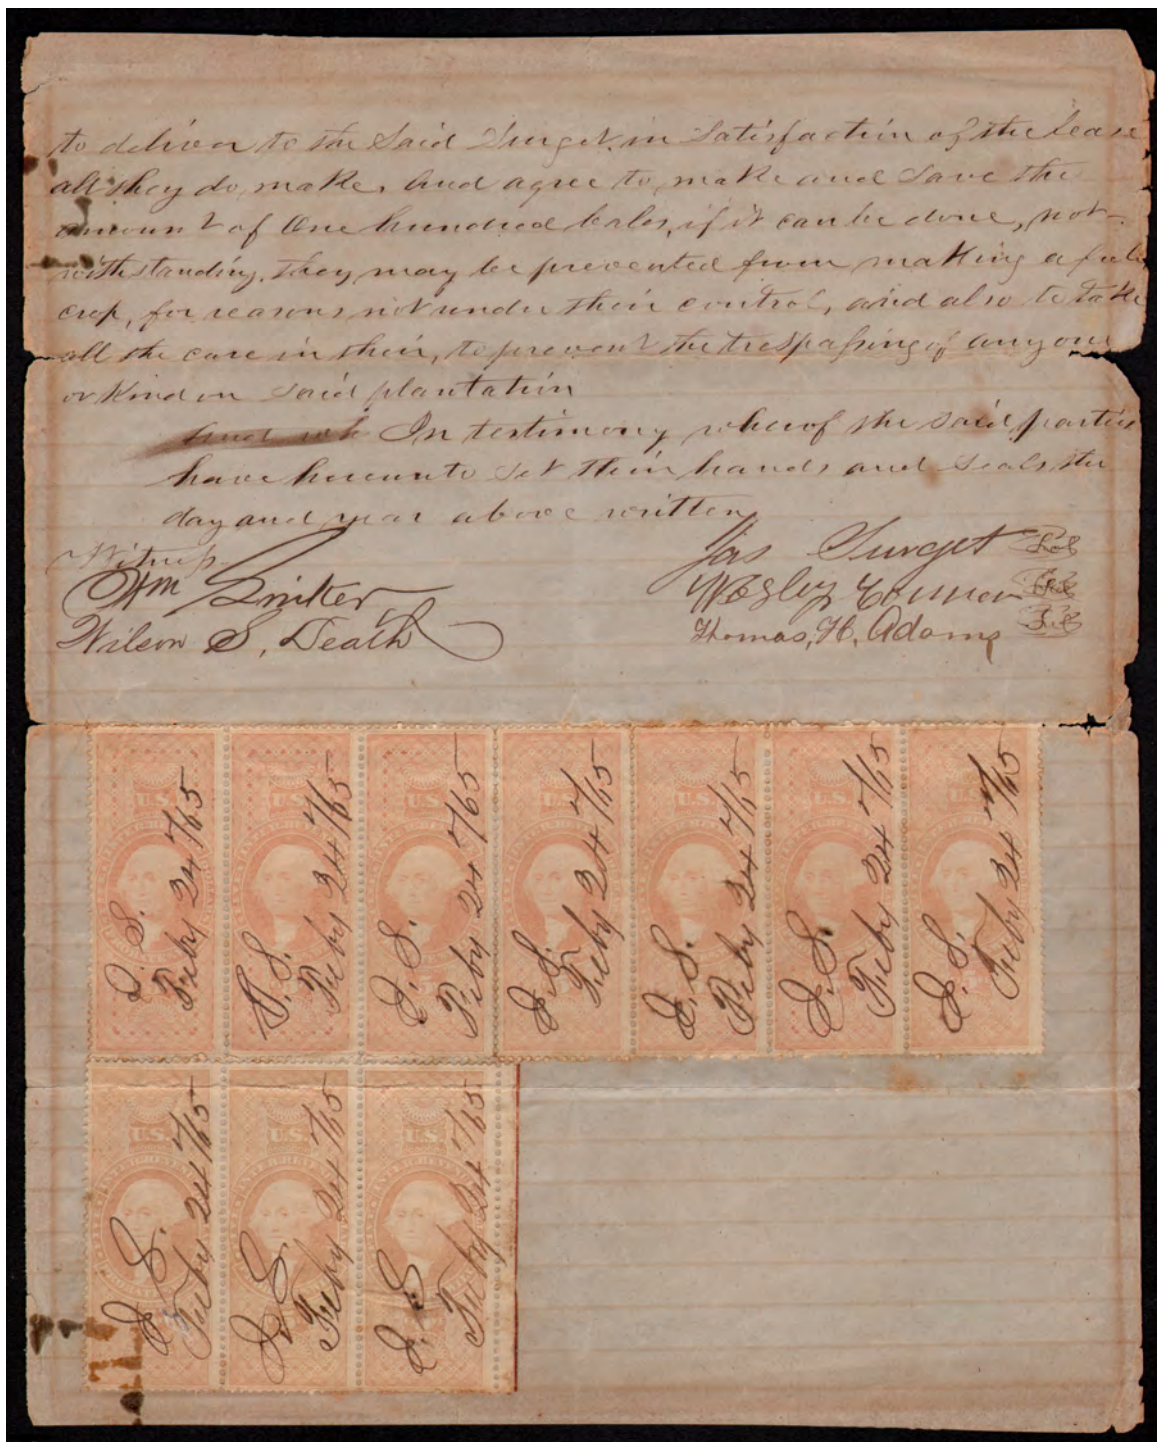 to deliver to the Said Surget, in Satisfaction of the Lease
all they do make, And agree to, make and Save the
amount of One hundred bales, if it can be done, not-
withstanding, they may be prevented from making a full
crop, for reasons not under their control, and also to take
all the care in their, to prevent the trespassing of any one
or Kind on Said plantation
In testimony whereof the Said parties
have hereunto Set their hands and Seals the
day and year above written
Witness
Jas Surget
Wm
Wesley
Wilson S. Death
Thomas, H. Adams
U.S.
U.S.
U.S.
U.S.
U.S.
U.S.
U.S.
J. S.
Feby 24 /65
J. S.
Feby 24 /65
J. S.
Feby 24 /65
J. S.
Feby 24 /65
J. S.
Feby 24 /65
J. S.
Feby 24 /65
J. S.
Feby 24 /65
U.S.
U.S.
U.S.
J. S.
Feby 24 /65
J. S.
Feby 24 /65
J. S.
Feby 24 /65